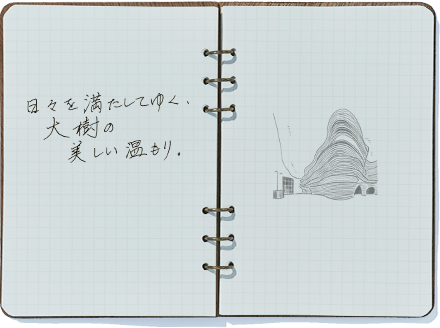 日々を満たしてゆく、
大樹の
美しい温もり。